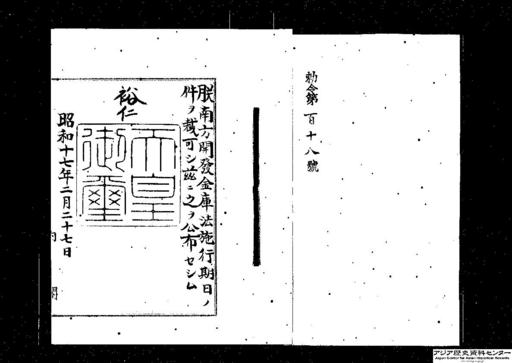 勅令第百十八號
朕南方開發金庫法施行期日ノ
件ヲ裁可シ茲ニ之ヲ公布セシム
裕仁
天皇
御璽
昭和十七年二月二十七日
アジア歴史資料センター
Japan Center for Asian Historical Records